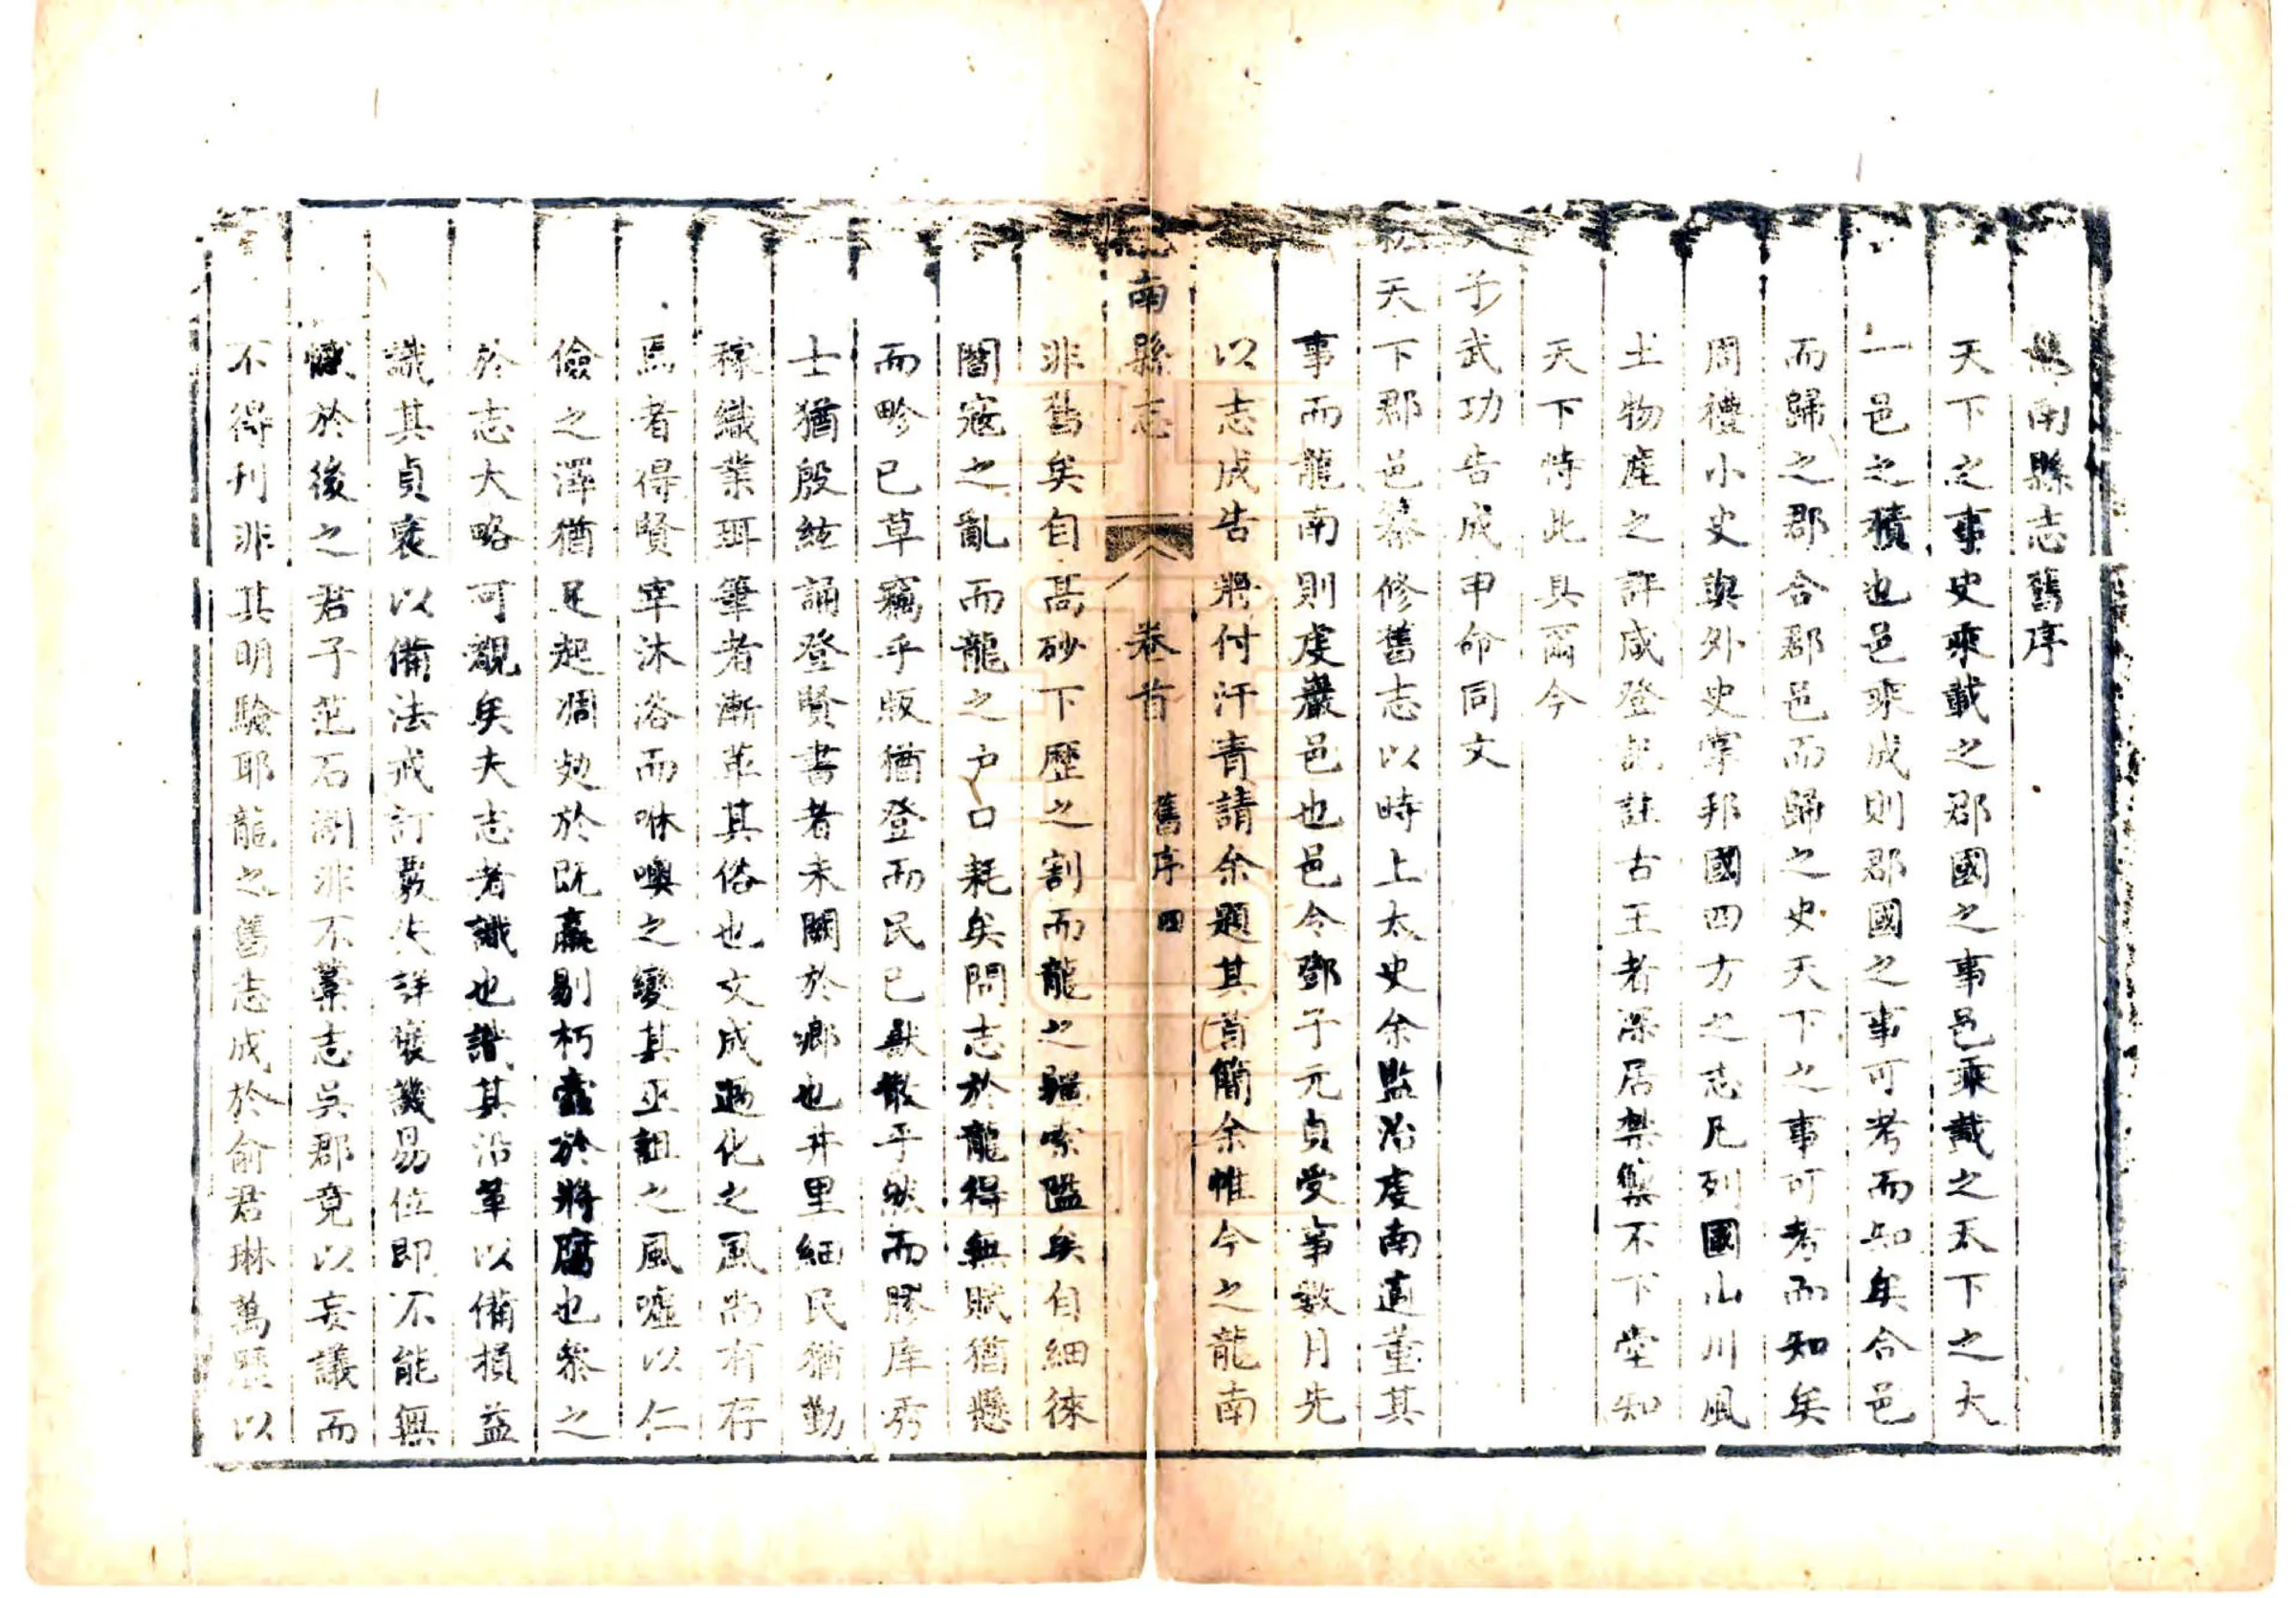 龍南縣志舊序
天下之事史乘載之郡國之事邑乘載之天下之大
一邑之積也邑乘成則郡國之事可考而知矣合邑
而歸之郡合郡邑而歸之史天下之事可考而知矣
周禮小史與外史掌邦國四方之志凡列國山川風
土物產之詳咸登記註古王者深居禁籞不下堂知
天下恃此具爾今
天子武功告成申命同文
天下郡邑纂修舊志以時上太史余監治虔南適董其
事而龍南則虔巖邑也邑令鄧子元貞受事數月先
以志成告將付汗青請余題其首簡余惟今之龍南
龍南縣志 卷首 舊序 四
非舊矣自高砂下歷之割而龍之疆索隘矣自細徠
閻寇之亂而龍之户口耗矣問志於龍得無賦猶懸
而畛已草竊乎版猶登而民已獸散乎然而膠庠秀
士猶殷絃誦登賢書者未闕於鄉也井里細民猶勤
稼織業珥筆者漸革其俗也文成過化之風尚有存
焉者得賢宰沐浴而咻噢之變其巫詛之風噓以仁
儉之澤猶足起凋攰於既羸剔朽蠹於將腐也叅之
於志大略可覩矣夫志者識也識其沿革以備損益
識其貞衺以備法戒訂覈失詳褒譏易位即不能無
憾於後之君子范石湖非不藁志吳郡竟以妄議而
不得刊非其明驗耶龍之舊志成於俞君琳萬歷以